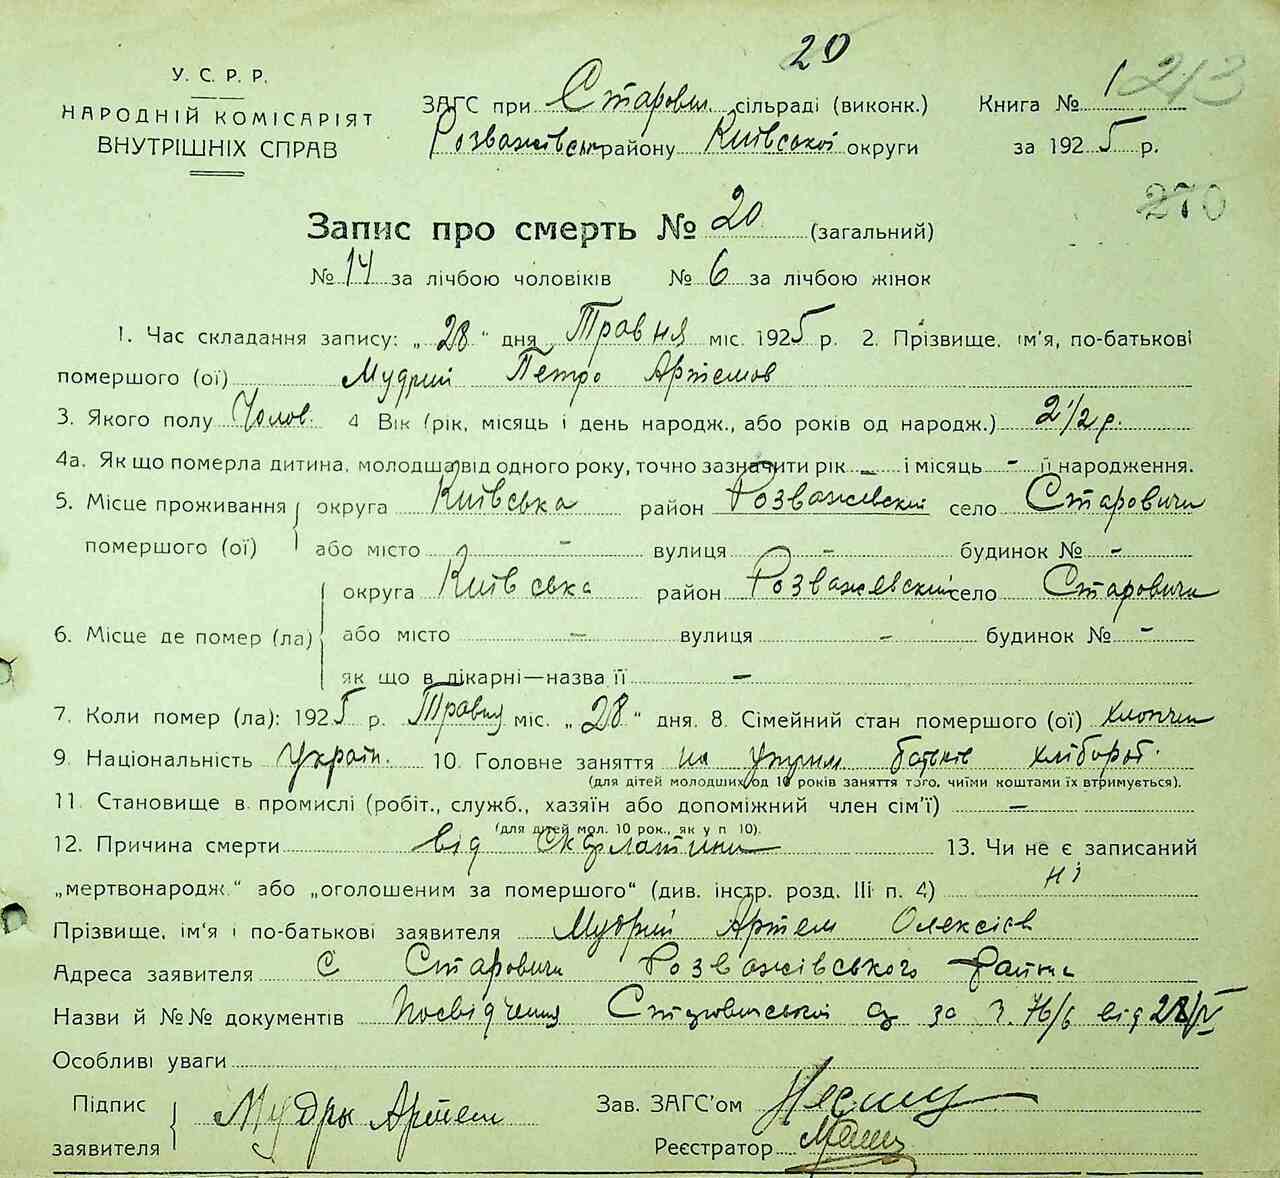 20
У. С. Р. Р.
НАРОДНІЙ КОМІСАРІЯТ
ВНУТРІШНІХ СПРАВ
ЗАГС при Старовиц. сільраді (виконк.)
Розважівськ району Київської округи
Книга № 1 213
за 1925 р.
270
Запис про смерть № 20 (загальний)
№ 14 за лічбою чоловіків № 6 за лічбою жінок
1. Час складання запису: „28" дня Травня міс. 1925 р. 2. Прізвище, ім'я, по-батькові
помершого (ої) Мудрий Петро Артемов
3. Якого полу Чолов. 4 Вік (рік, місяць і день народж., або років од народж.) 2 1/2 р.
4а. Як що померла дитина, молодша від одного року, точно зазначити рік – і місяць – її народження.
5. Місце проживання округа Київська район Розважевский село Старовичи
помершого (ої) або місто – вулиця – будинок № –
округа Київська район Розважевский село Старовичи
6. Місце де помер (ла) або місто – вулиця – будинок № –
як що в лікарні—назва її –
7. Коли помер (ла): 1925 р. Травня міс. „28" дня. 8. Сімейний стан помершого (ої) хлопчик
9. Національність Україн. 10. Головне заняття на утрим батьків хлібороб.
(для дітей молодших од 10 років заняття того, чиїми коштами їх втримується).
11. Становище в промислі (робіт., служб., хазяїн або допоміжний член сім'ї) –
(для дітей мол. 10 рок., як у п 10).
12. Причина смерти від скарлатини 13. Чи не є записаний
„мертвонародж." або „оголошеним за помершого" (див. інстр. розд. III п. 4) ні
Прізвище, ім'я і по-батькові заявителя Мудрий Артем Олексієв
Адреса заявителя С Старовичи Розважівського Району
Назви й №№ документів Посвідчення за ч. 76/6 від 28/V
Особливі уваги
Підпис
заявителя Мудры Артем
Зав. ЗАГС'ом
Реєстратор